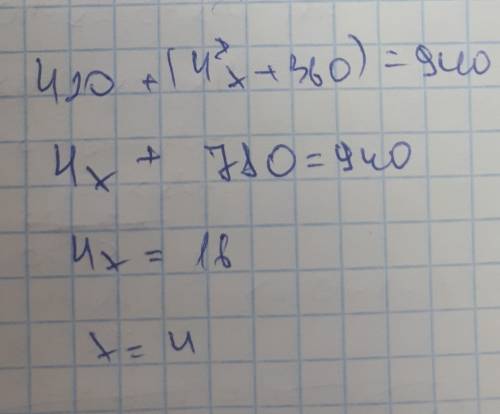 420 + (4x + 360) = 940
4x + 780 = 940
4x = 16
x = 4